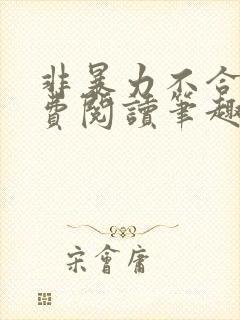 非暴力不合
費閱讀筆趣
宋會庸